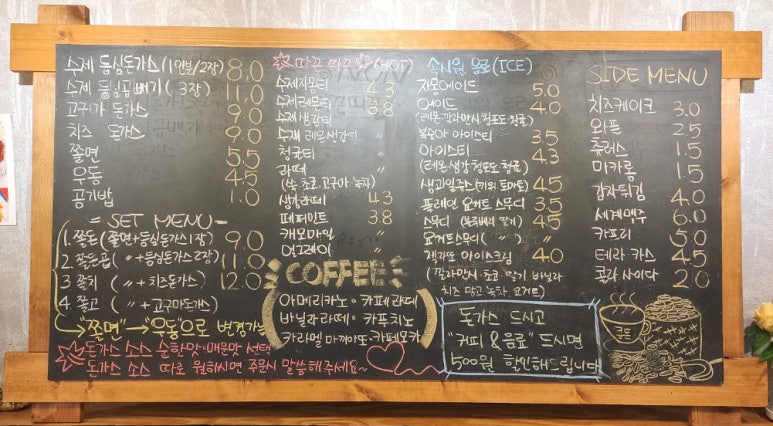 수제 등심돈가스 (1인분/2장) 8.0
수제 등심곱빼기 (3장) 11.0
고구마 돈가스 9.0
치즈 돈가스 9.0
쫄면 5.5
우동 4.5
공기밥 1.0
= SET MENU -
1. 쫄돈 (쫄면+등심돈가스1장) 9.0
2. 쫄돈곱 ( 〃 +등심돈가스2장) 11.0
3. 쫄치 ( 〃 + 치즈돈가스) 12.0
4. 쫄고 ( 〃 + 고구마돈가스)
"쫄면" → "우동"으로 변경가능
돈가스 소스 순한맛·매운맛 선택
돈가스 소스 따로 원하시면 주문시 말씀해주세요~
따끈 따끈 (HOT)
수제자몽티 4.3
수제레몬티 3.8
수제생강티 〃
수제 레몬생강티 〃
청귤티 〃
라떼 〃
(쑥 초코 고구마 녹차)
생강라떼 4.3
페퍼민트 3.8
캐모마일 〃
얼그레이 〃
COFFEE
아메리카노 · 카페라떼
바닐라라떼 · 카푸치노
카라멜 마끼아또 · 카페모카
음료 (ICE)
자몽에이드 5.0
에이드 4.0
복숭아 아이스티 3.5
아이스티 4.3
(레몬 생강 청포도 청귤)
생과일주스 (키위 토마토) 4.5
플레인 요거트 스무디 3.5
스무디 (블루베리 딸기) 4.5
요거트스무디 ( 〃 ) 〃
젤라또 아이스크림 4.0
돈가스 드시고
"커피 & 음료" 드시면
500원 할인해드립니다
SIDE MENU
치즈케이크 3.0
와플 2.5
츄러스 1.5
마카롱 1.5
감자튀김 4.0
세계맥주 6.0
카프리 5.0
테라 카스 4.5
콜라 사이다 2.0